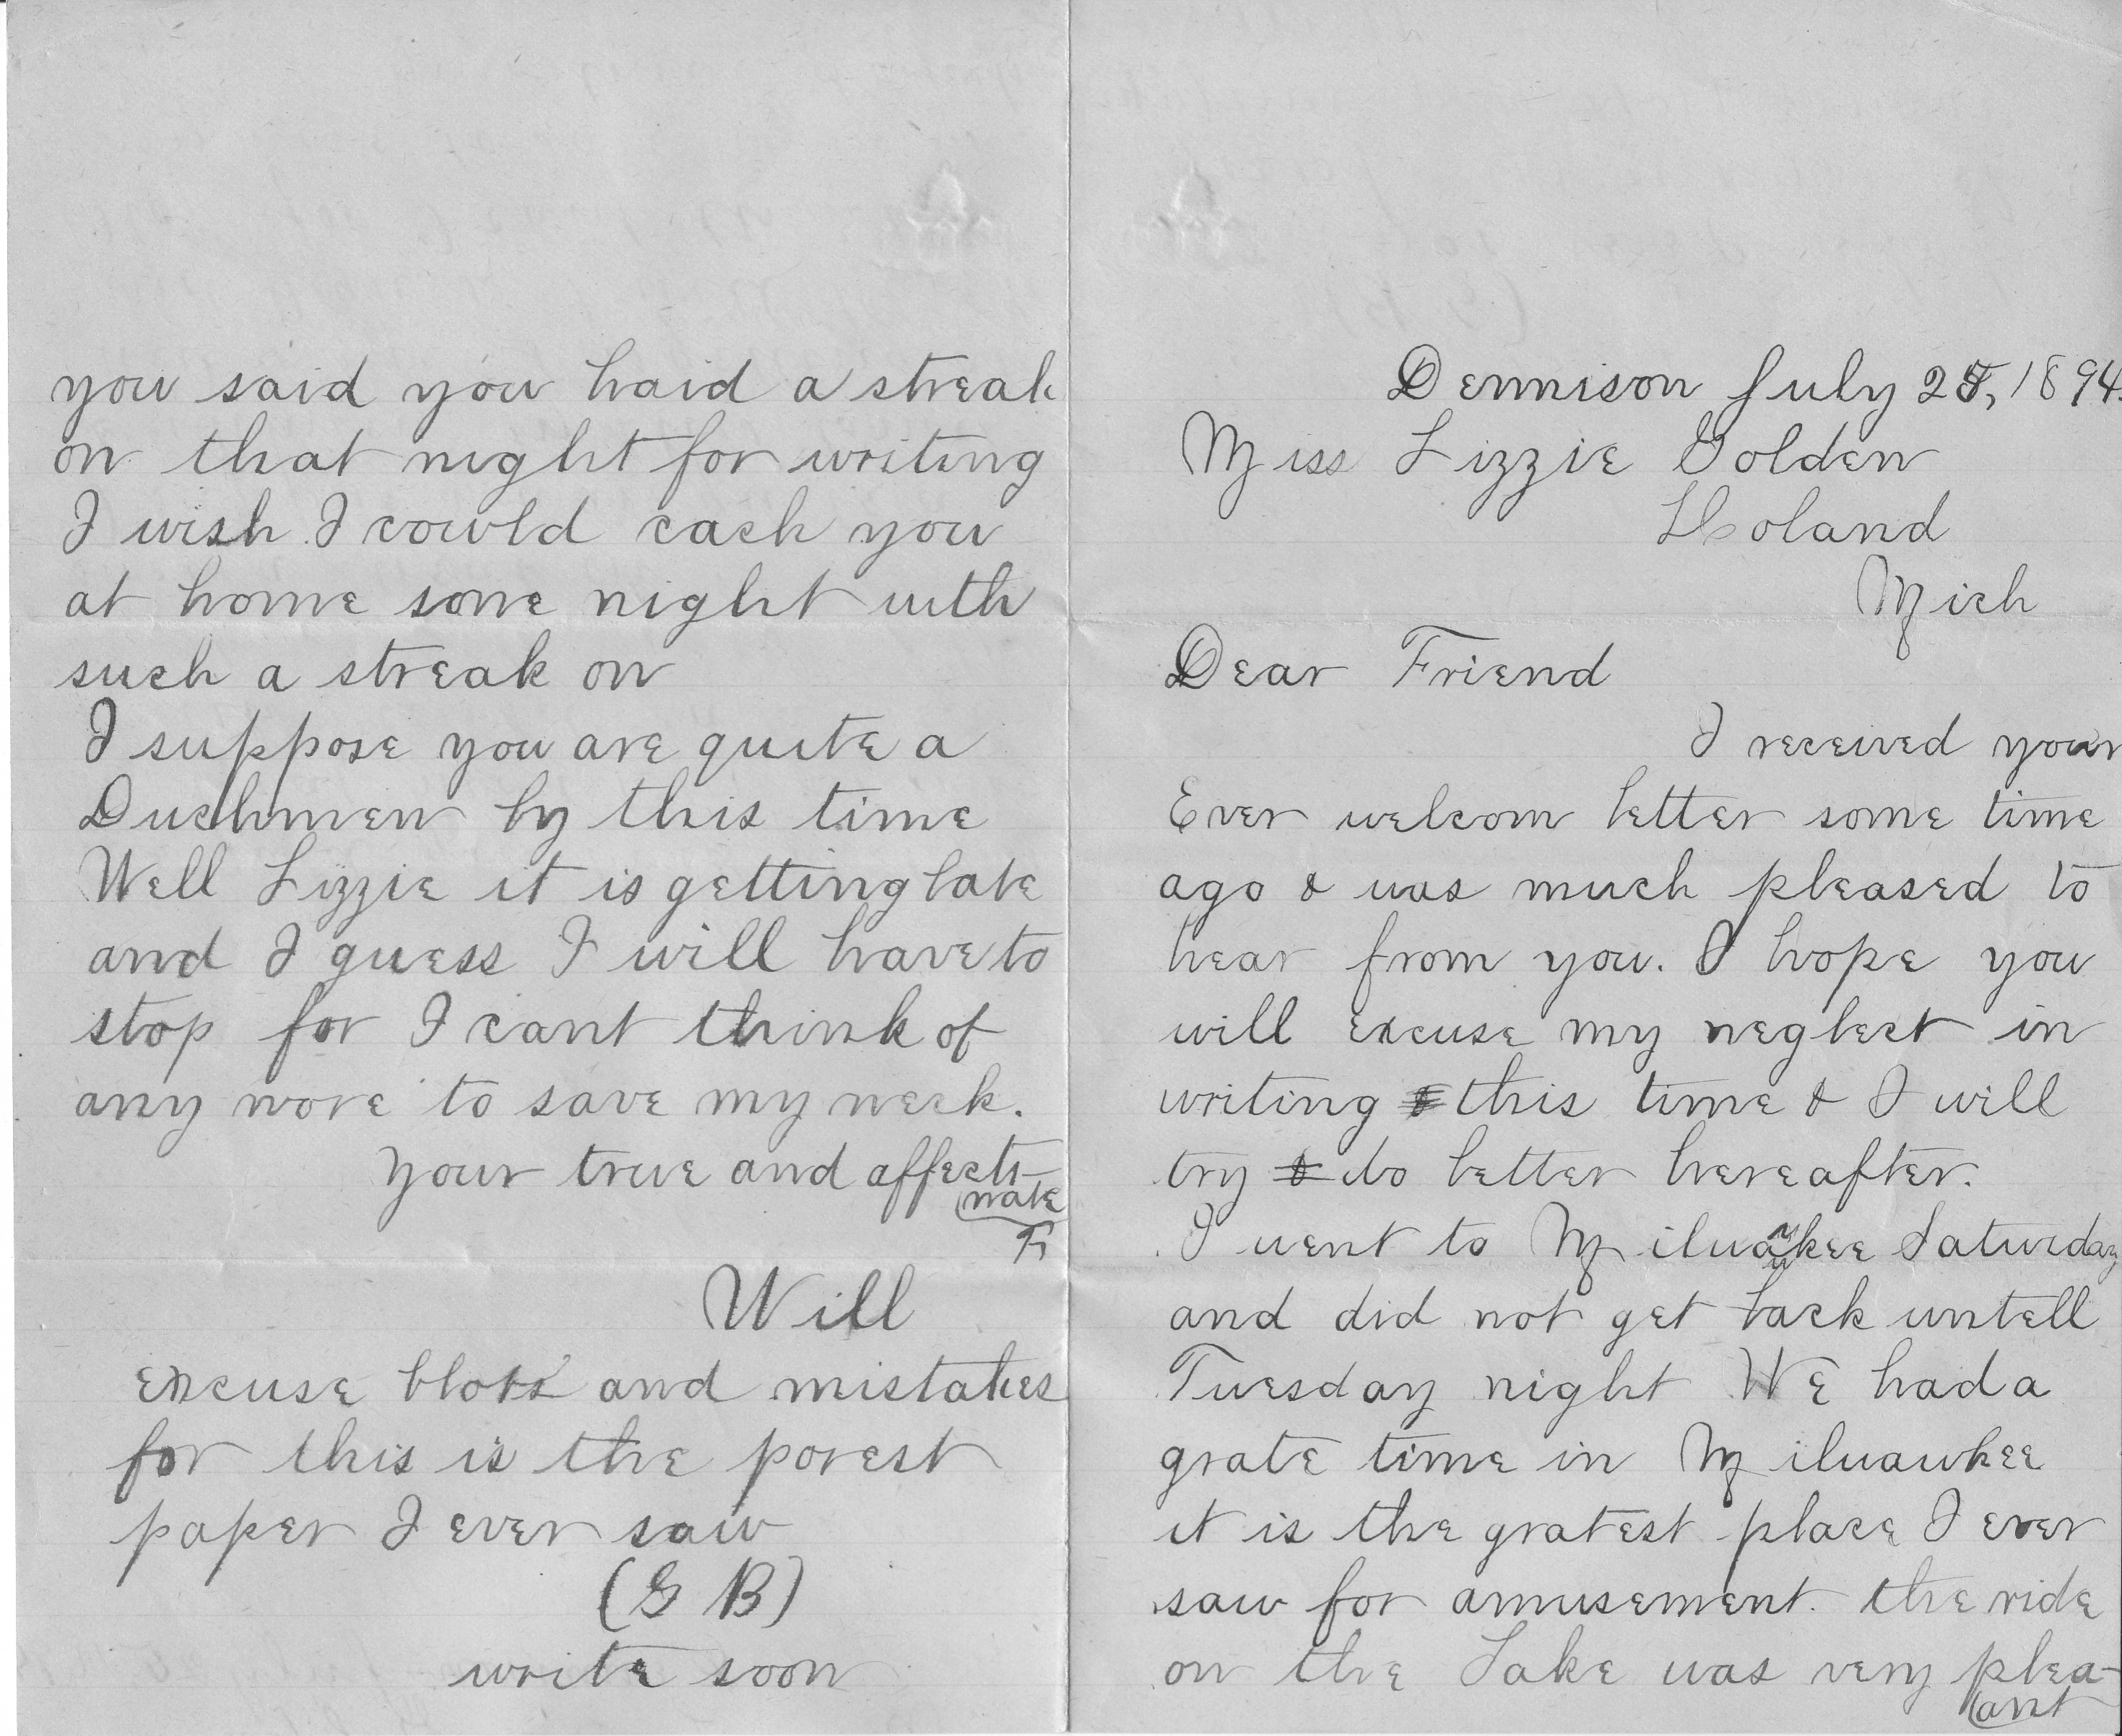 Dennison July 25, 1894.
Miss Lizzie Golden
Holand
Mich
Dear Friend
I received your
Ever welcom letter some time
ago & was much pleased to
hear from you. I hope you
will excuse my neglect in
writing this time & I will
try to do better hereafter.
I went to Miluawkee Saturday
and did not get back untell
Tuesday night WE had a
grate time in Miluawkee
it is the gratest place I ever
saw for amusement. the ride
on the Lake was very plea-
ant
you said you haid a streak
on that night for writing
I wish I cowld cach you
at home some night with
such a streak on
I suppose you are quite a
Duchmen by this time
Well Lizzie it is getting late
and I guess I will have to
stop for I cant think of
any more to save my neck.
Your true and affecti-
nate
Fr
Will
excuse blots and mistakes
for this is the porest
paper I ever saw
(G B)
write soon